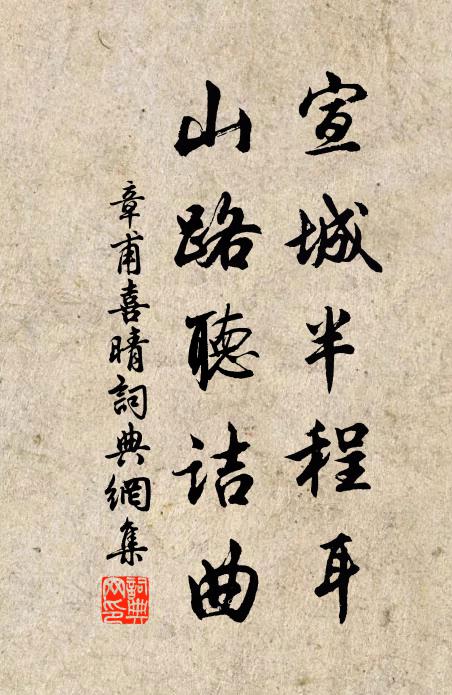 宣城半程耳
山路聽詰曲
章甫喜晴詞典網集
詞典
网印